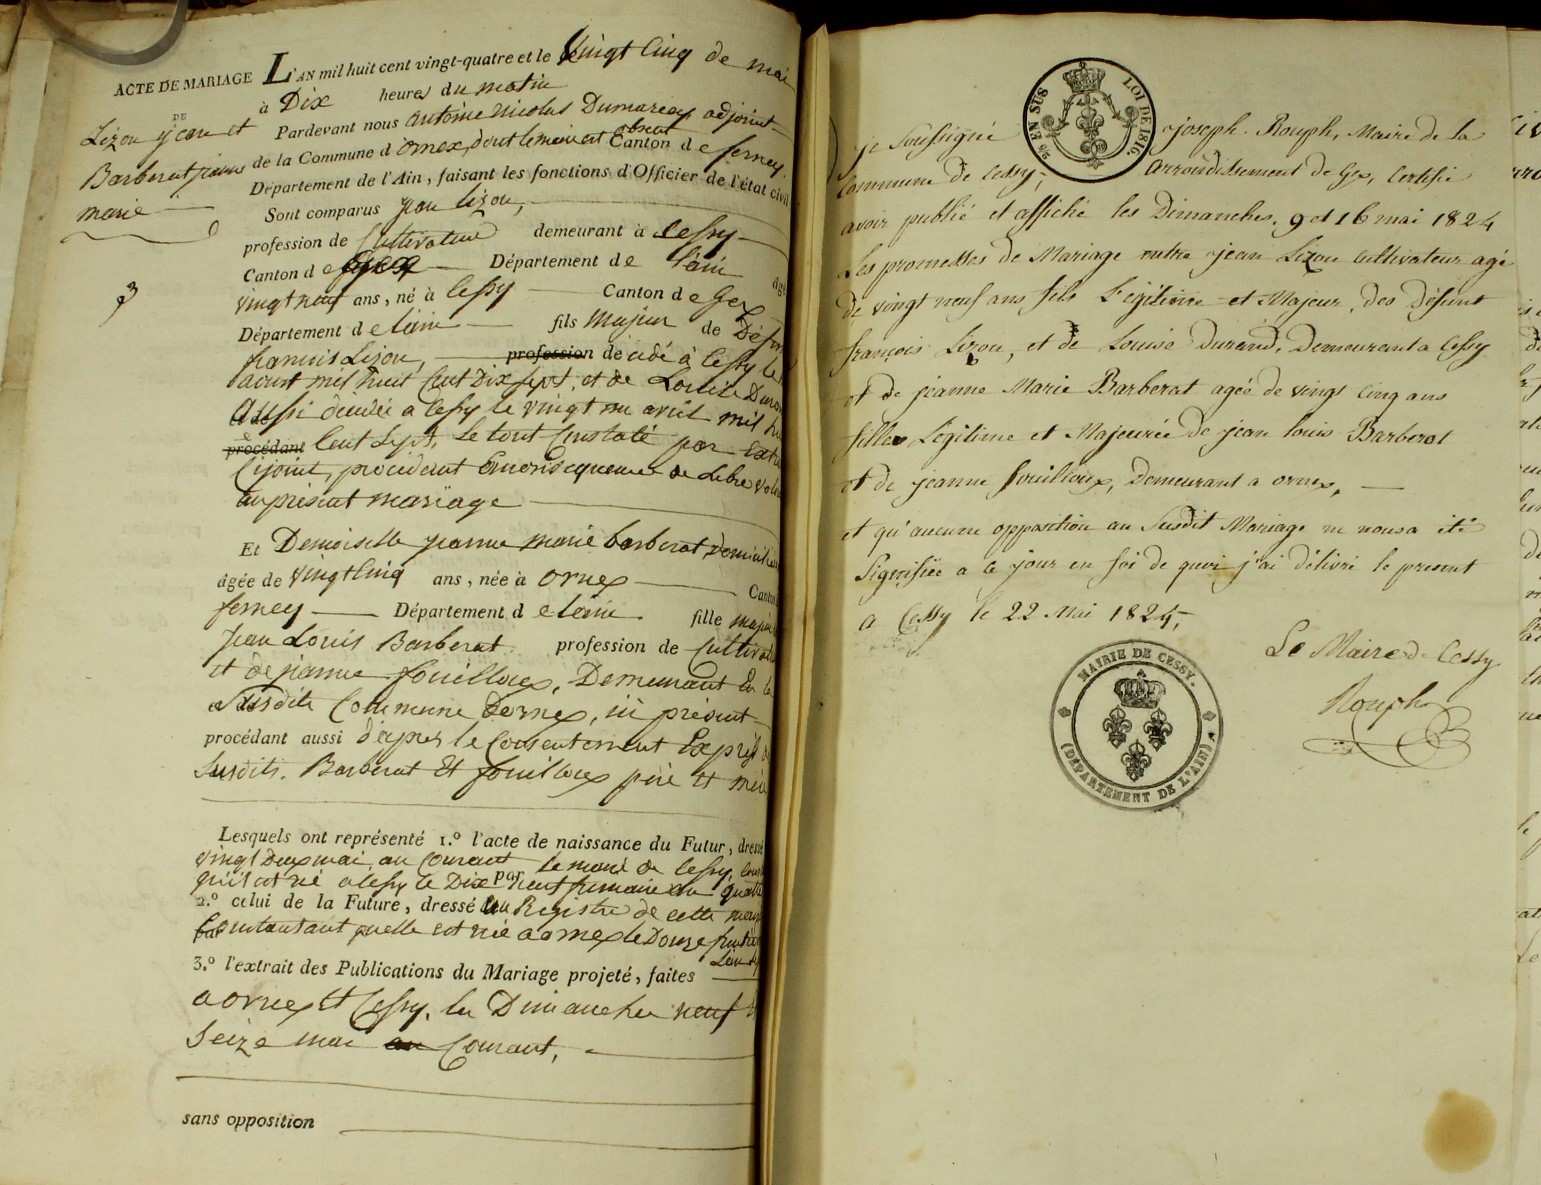 ACTE DE MARIAGE
DE
Lizou jean et
Barberat jeanne
marie
3
L'AN mil huit cent vingt-quatre et le vingt cinq de mai
à Dix heures du matin
Pardevant nous antoine nicolas Dumarest adjoint
de la Commune d'ornex, dont le maire est absent Canton de ferney
Département de l'Ain, faisant les fonctions d'Officier de l'état civil
Sont comparus jean Lizou,
profession de Cultivateur demeurant à Cessy
Canton de Gex Département de l'ain âgé
vingt neuf ans, né à Cessy Canton de Gex
Département de l'ain fils majeur de Défunt
francois Lizou, profession de cédé à Cessy le
aoust mil huit Cent Dix sept, et de Louise Duran
aussi décédée a Cessy le vingt un avril mil hu
procédant Cent Sept, le tout Constaté par extr
Cijoint, procédant En conséquence de Libre vol
au présent mariage
Et Demoiselle jeanne marie barberat, domiciliée
âgée de vingt cinq ans, née à ornex Canton
ferney Département de l'ain fille majeu
jean Louis Barberat profession de Cultivat
et de jeanne fouilloux, Demeurant En la
Susdite Commune Dornex, ici présent
procédant aussi d'après le Consentement Exprès d
Susdits Barberat Et fouilloux père et mère
Lesquels ont représenté 1.º l'acte de naissance du Futur, dressé
vingt Deux mai au Courant par le maire de Cessy, Const
qu'il est né a Cessy le Dix neuf frimaire an quatre
2.º celui de la Future, dressé au Registre de cette mairie
par Constatant quelle est née a ornex le Douze fruct
L'an sep
3.º l'extrait des Publications du Mariage projeté, faites
a ornex Et Cessy, les Dimanches neuf &
Seize mai au Courant,
sans opposition
25 EN SUS LOI DE 1816.
je soussigné joseph Rouph, Maire de la
Commune de Cessy, arrondissement de Gex, Certifie
avoir publié et affiché les Dimanches, 9 et 16 mai 1824
Les promesses de Mariage entre jean Lizou cultivateur agé
de vingt neuf ans fils Légitime et Majeur, des défunt
françois Lizou, et de Louise durand, Demeurant a Cessy
et de jeanne Marie Barberat agée de vingt cinq ans
fille Légitime et Majeurée de jean louis Barberat
et de jeanne fouilloux, Demeurant a ornex,
et qu'aucune opposition au Susdit Mariage ne nous a été
Signifiée a ce jour en foi de quoi j'ai délivré le present
a Cessy le 22 Mai 1824,
Le Maire de Cessy
Rouph
MAIRIE DE CESSY.
(DÉPARTEMENT DE L'AIN)